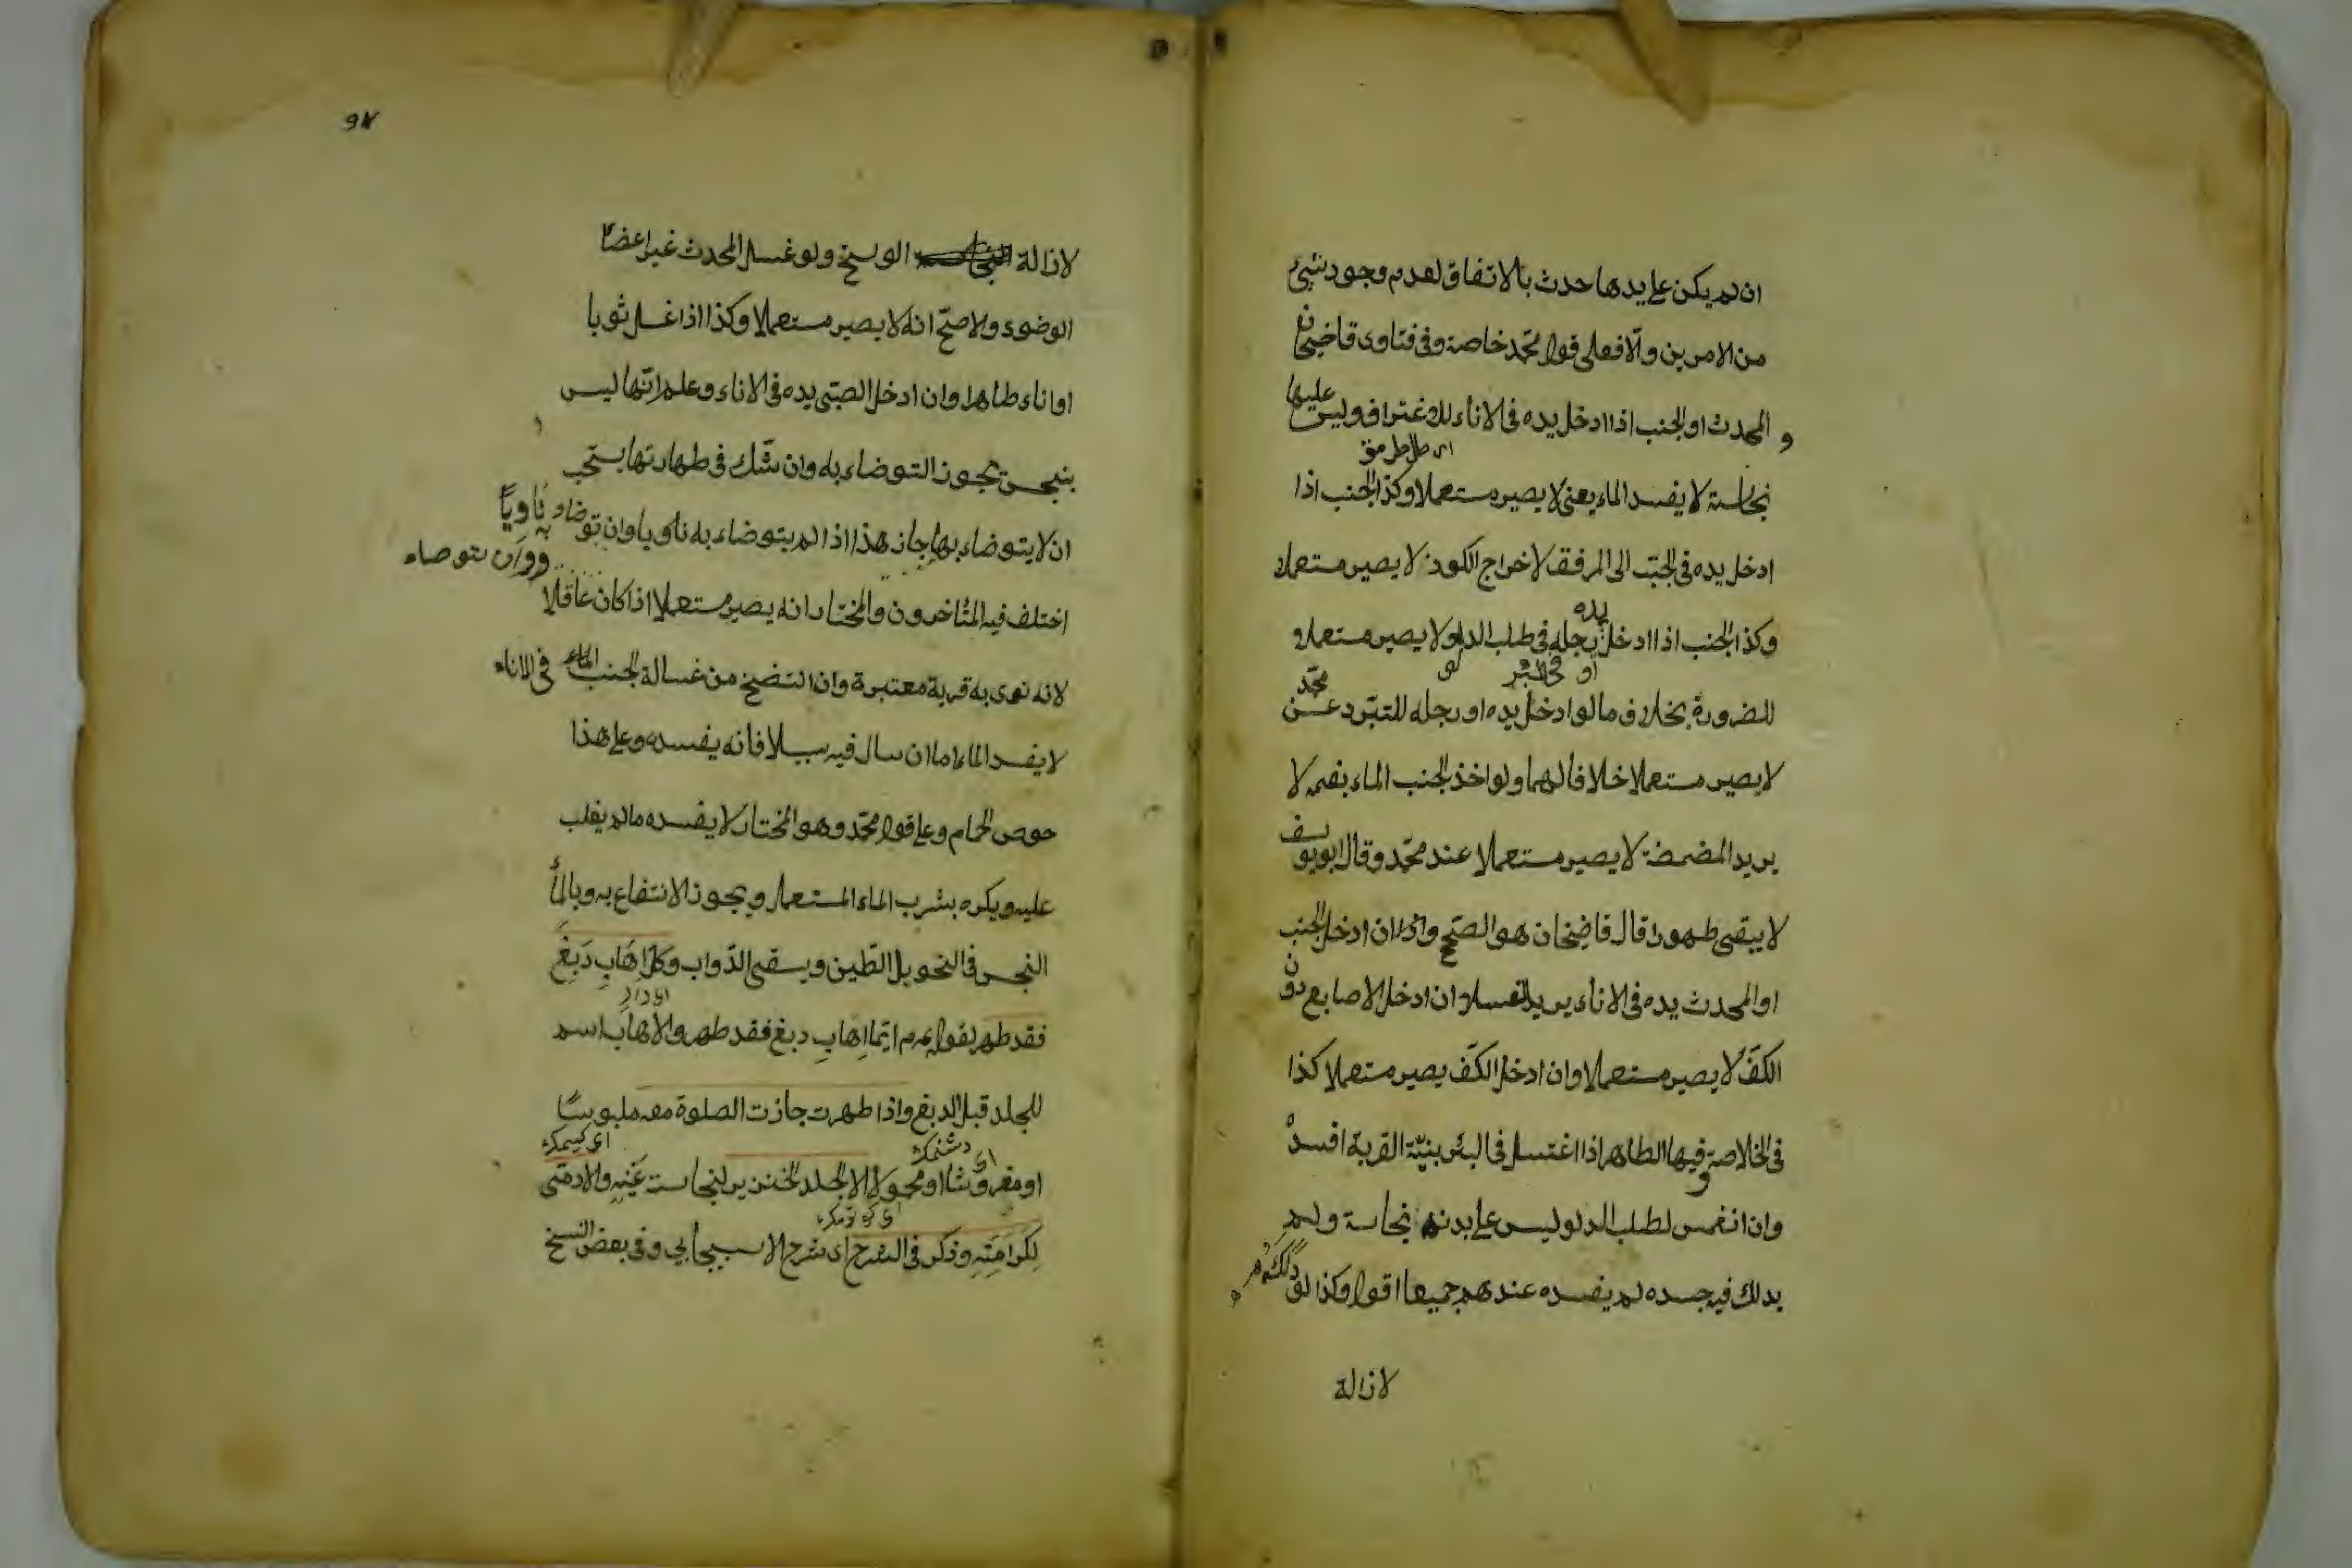 ان لم يكن على يدها حدث بالاتفاق لعدم وجود شيئ
من الامرين والّا فعلى قول محمّد خاصة وفى فتاوى قاضيخان
و المحدث او الجنب اذا ادخل يده فى الاناء للاغتراف وليس عليها
نجاسة لا يفسد الماء يعنى لا يصير مستعملا وكذا الجنب اذا
ادخل يده فى الجبّ الى المرفق لاخراج الكوز لا يصير مستعملا
يده
وكذا الجنب اذا ادخل رجله فى طلب الدلو لا يصير مستعملا
او فى البئر
للضرورة بخلاف ما لو ادخل يده او رجله للتبرّد عن محمّد
لا يصير مستعملا خلافا لهما ولو اخذ الجنب الماء بفمه لا
يريد المضمضة لا يصير مستعملا عند محمّد وقال ابو يوسف
لا يبقى طهورا قال قاضيخان هو الصحّيح وان ادخل الجنب
او المحدث يده فى الاناء يريد الغسل ان ادخل الاصابع دون
الكفّ لا يصير مستعملا وان ادخل الكفّ يصير مستعملا كذا
فى الخلاصة وفيها الطاهر اذا اغتسل فى البئر بنيّة القربة افسده
وان انغمس لطلب الدلو وليس على بدنه نجاسة ولم
يدلك فيه جسده لم يفسده عندهم جميعا اقول وكذا لو دلك
لازالة
٩٧
لازالة الوسخ ولو غسل المحدث غير اعضا
الوضوء والاصحّ انه لا يصير مستعملا وكذا اذا غسل ثوبا
او اناء طاهرا وان ادخل الصبّى يده فى الاناء وعلم انّها ليس
بنجس يجوز التوضاء به وان شّك فى طهارتها يستحب
ان لا يتوضاء بها جاز هذا اذا لم يتوضاء به ناويا وان توضاو به ناويًا
وان توضاء
اختلف فيه المتأخرون والمختار انه يصير مستعملا اذا كان عاقلا
لانه نوى به قربة معتبرة وان انتضخ من غسالة الجنب الماء فى الاناء
لا يفسد الماء اما ان سال فيه سيلا فانه يفسده وعلى هذا
حوض الحمام وعلى قول محمّد وهو المختار لا يفسده مالم يغلب
عليه ويكره بشرب الماء المستعمل ويجوز الانتفاع به وبالمأ
النجس فى النحو بل الطّين ويسقى الدّواب وكلّ اِهَابٍ دُبِغَ
فقد طهر لقوله عم م ايّما اِهابٍ دبغ فقد طهر والاهاب اسم
للجلد قبل الدبغ واذا طهرت جازت الصلوة معه ملبوسًا
اى دشنمك اى كيمك
او مفروشًا او محمولًا الا جلد الخنزير لنجاست عَينِهِ والادمّى
لِكرامَتِهِ وذكر فى الشرح اى شرح الاسبيجابى وفى بعض النسخ